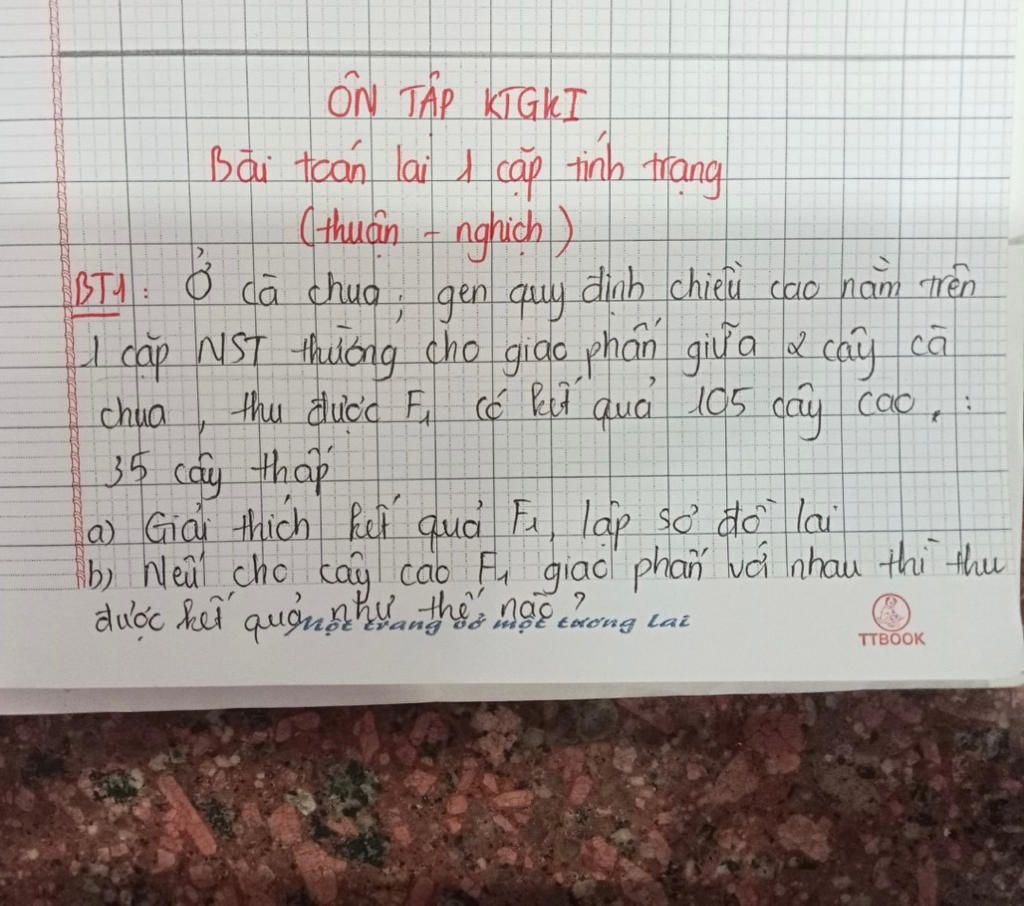 ÔN TẬP KTGKI
Bài toán lai 1 cặp tính trạng
(thuận - nghịch)
BT1: Ở cà chua, gen quy định chiều cao nằm trên
1 cặp NST thường cho giao phấn giữa 2 cây cà
chua, thu được F1 có kết quả 105 cây cao, :
35 cây thấp
a) Giải thích kết quả F1, lập sơ đồ lai
b) Nếu cho cây cao F1 giao phấn với nhau thì thu
được kết quả như thế nào?
Một trang vở một tương lai
TTBOOK